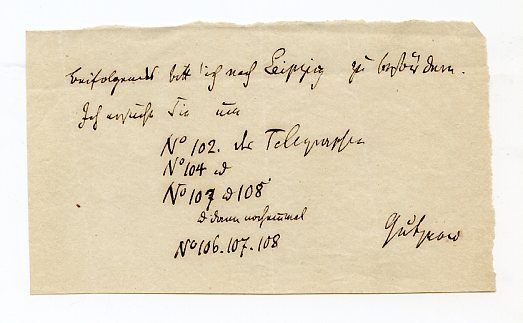 Beifolgendes bitt' ich nach Leipzig zu befördern.
Ich ersuche Sie um
No 102. des Telegraphen
No 104 &
No 107 & 108.
& dann nocheinmal
No 106. 107. 108
Gutzkow